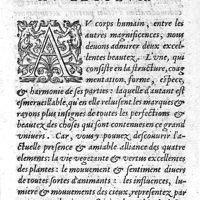 AV corps humain, entre les
autres magnificences, nous
deuons admirer deux excel-
lentes beautez. L'vne, qui
consiste en la structure, coag-
mentation, forme, espece,
& harmonie de ses parties: laquelle d'autant est
esmerueillable, qu'en elle reluisent les marques &
rayons plus insignes de toutes les perfections &
beautez des choses qui sont contenues en ce grand
vniuers. Car, vous y pouuez descouurir l'a-
ctuelle presence & amiable alliance des quatre
elements: la vie vegetante & vertus excellentes
des plantes: le mouuement & sentiment diuers
de toutes sortes d'animants: les influences, lumie-
re & mouuements des cieux, representez par